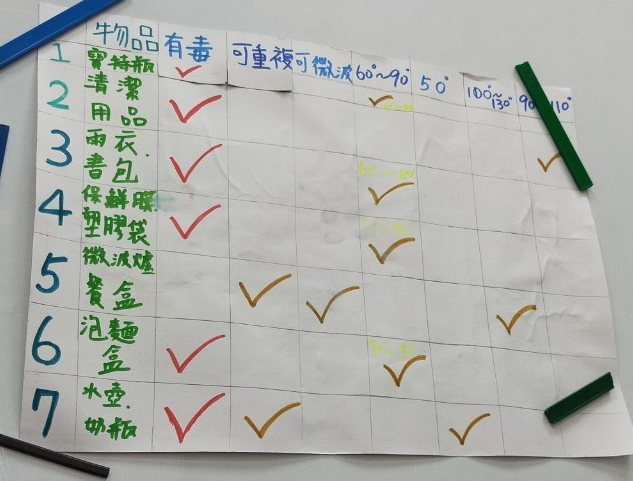 物品 有毒 可重複 可微波 60°~90° 50° 100°~130° 90° 110°
1 寶特瓶 ✓
2 清潔用品 ✓ ✓
3 雨衣.書包 ✓ ✓
4 保鮮膜塑膠袋 ✓ ✓ ✓
5 微波爐餐盒 ✓ ✓ ✓
6 泡麵盒 ✓ ✓
7 水壺.奶瓶 ✓ ✓ ✓